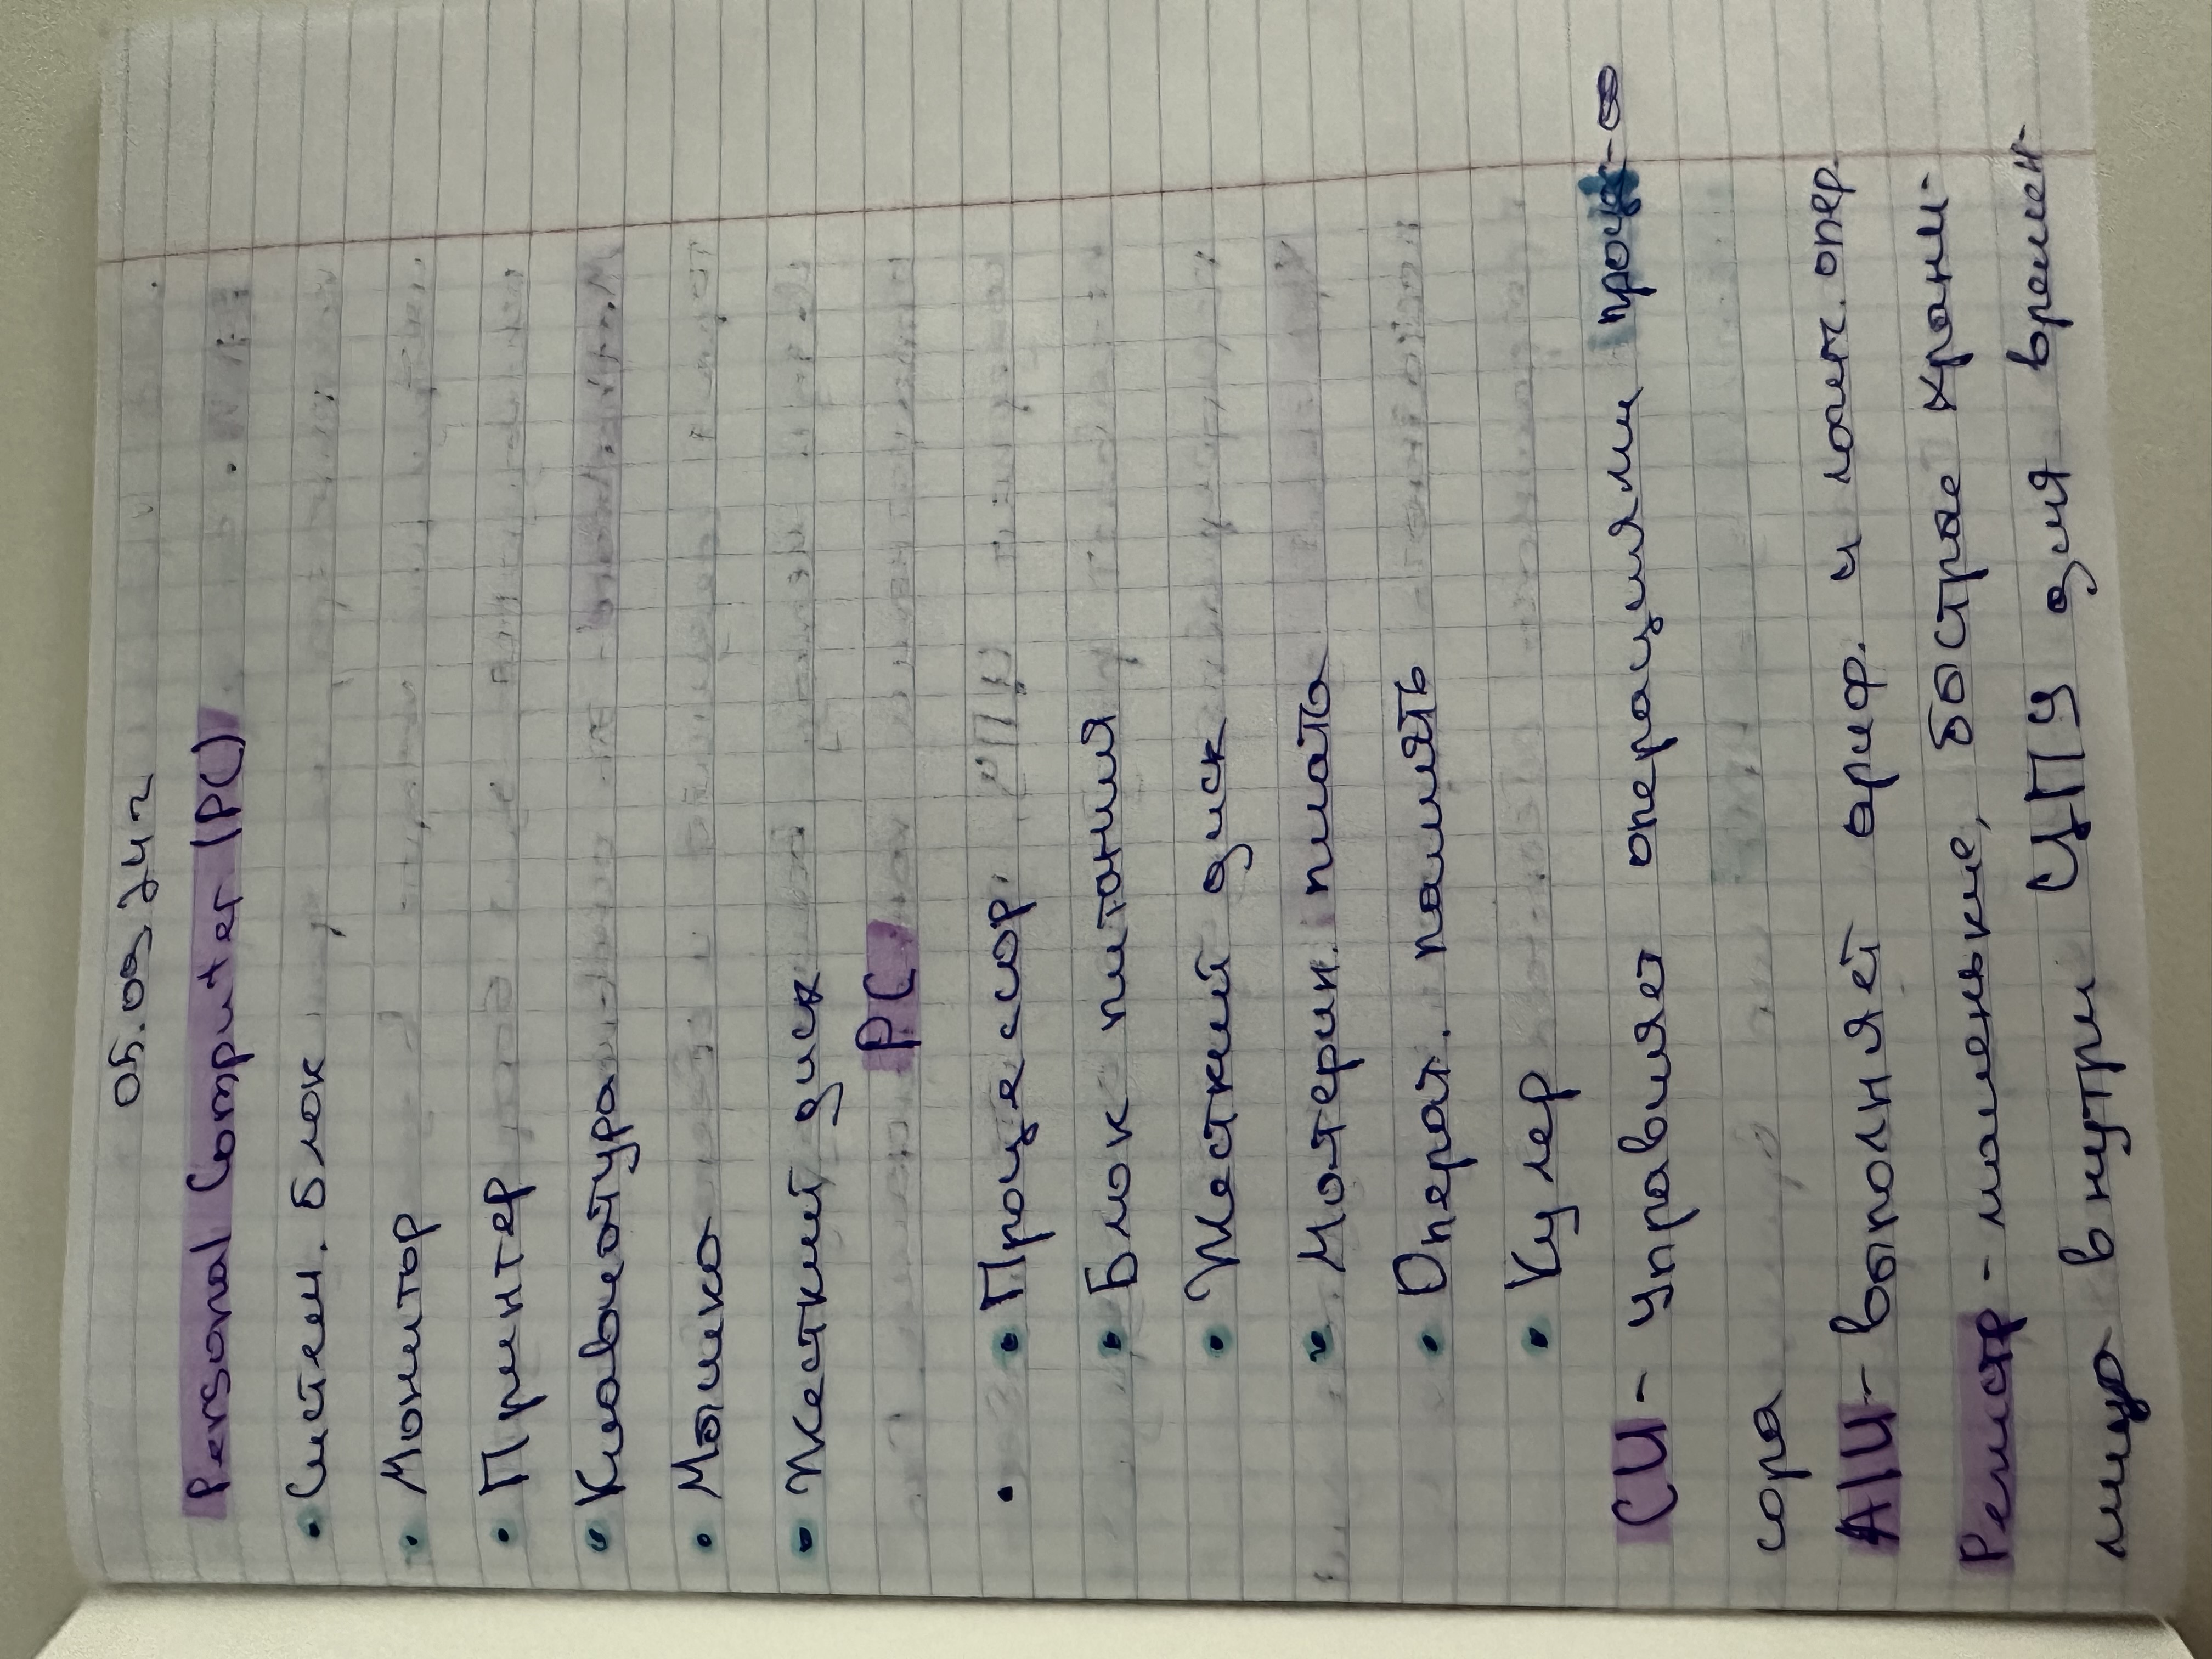 05.09.24г
Personal Computer (PC)
• Систем. блок
• Монитор
• Принтер
• Клавиатура
• Мышка
• Жесткий диск
PC
• • Процессор
• Блок питания
• Жесткий диск
• Материн. плата
• Операт. память
• Кулер
CU - Управляет операциями процес-
сора
A/U - Выполняет ариф. и логич. опер.
Регистр - маленькие, быстрые храни-
лища внутри ЦПУ для времен-